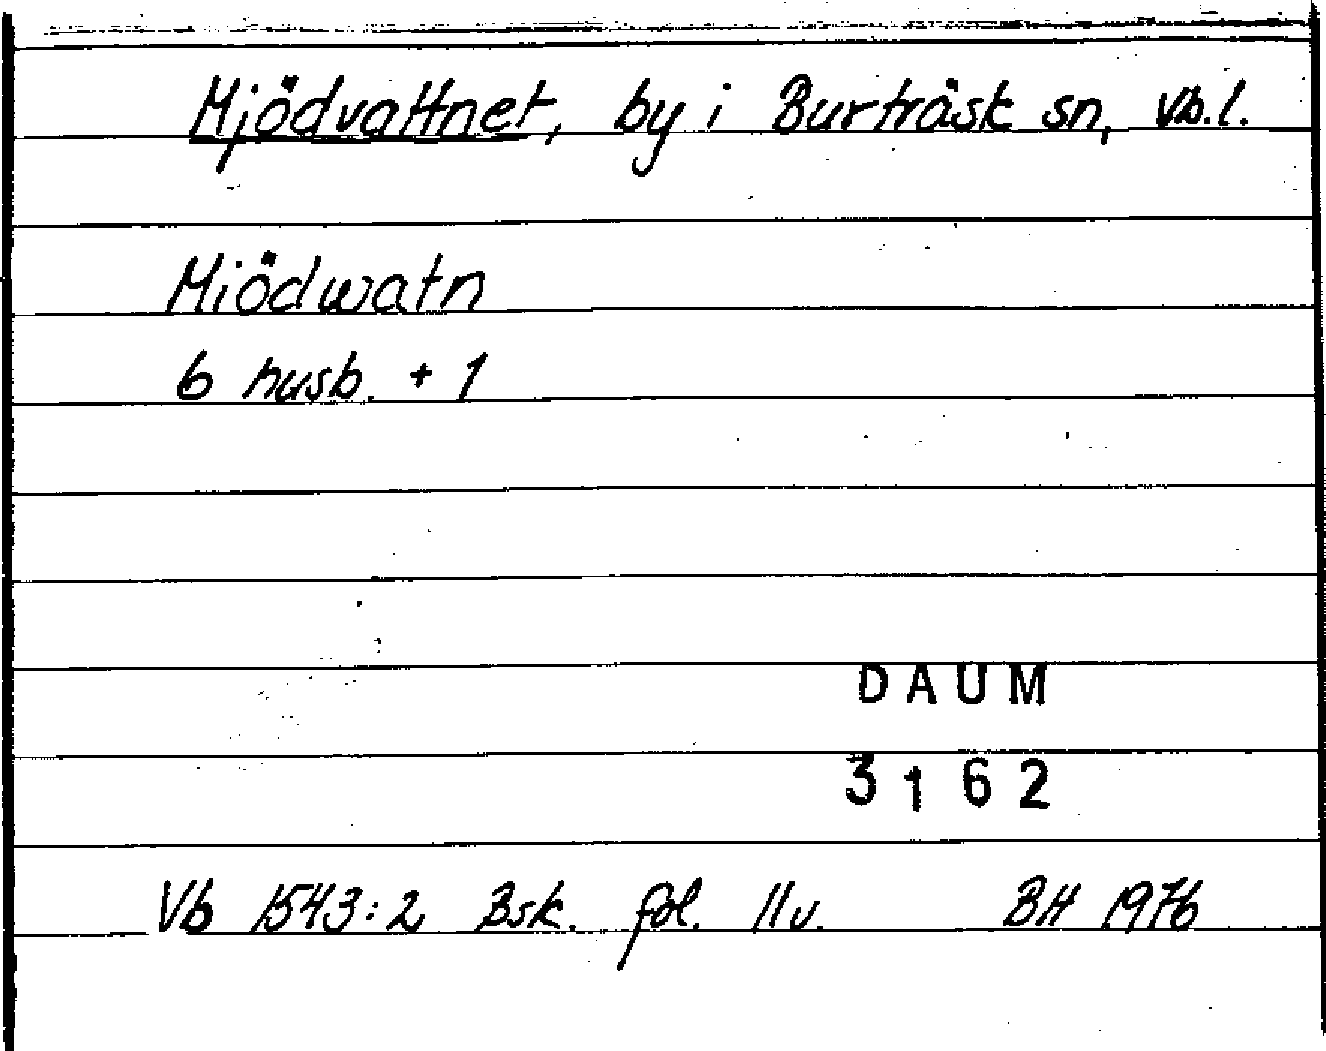 Mjödvattnet, by i Burträsk sn, Vb.l.
Miödwatn
6 husb. + 1
DAUM
3162
Vb 1543:2 Bsk. fol. 11v. BH 1976